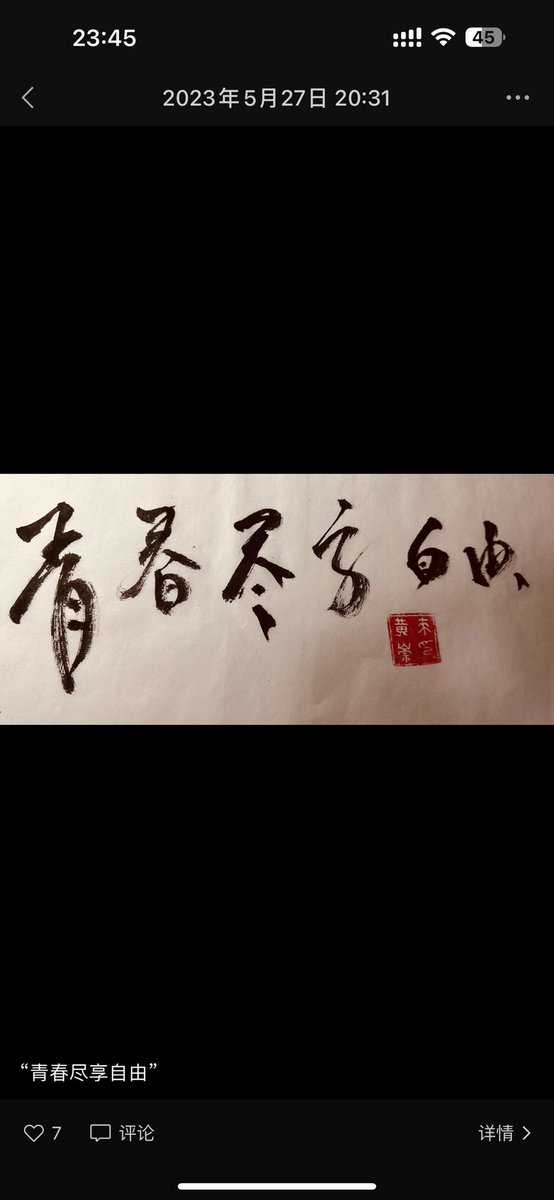 23:45
45
2023年5月27日 20:31
青春尽享自由
“青春尽享自由”
7
评论
详情